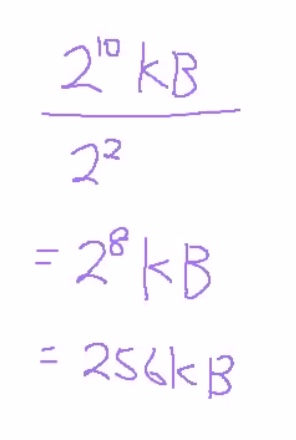 2¹⁰ kB
2²
= 2⁸ kB
= 256kB